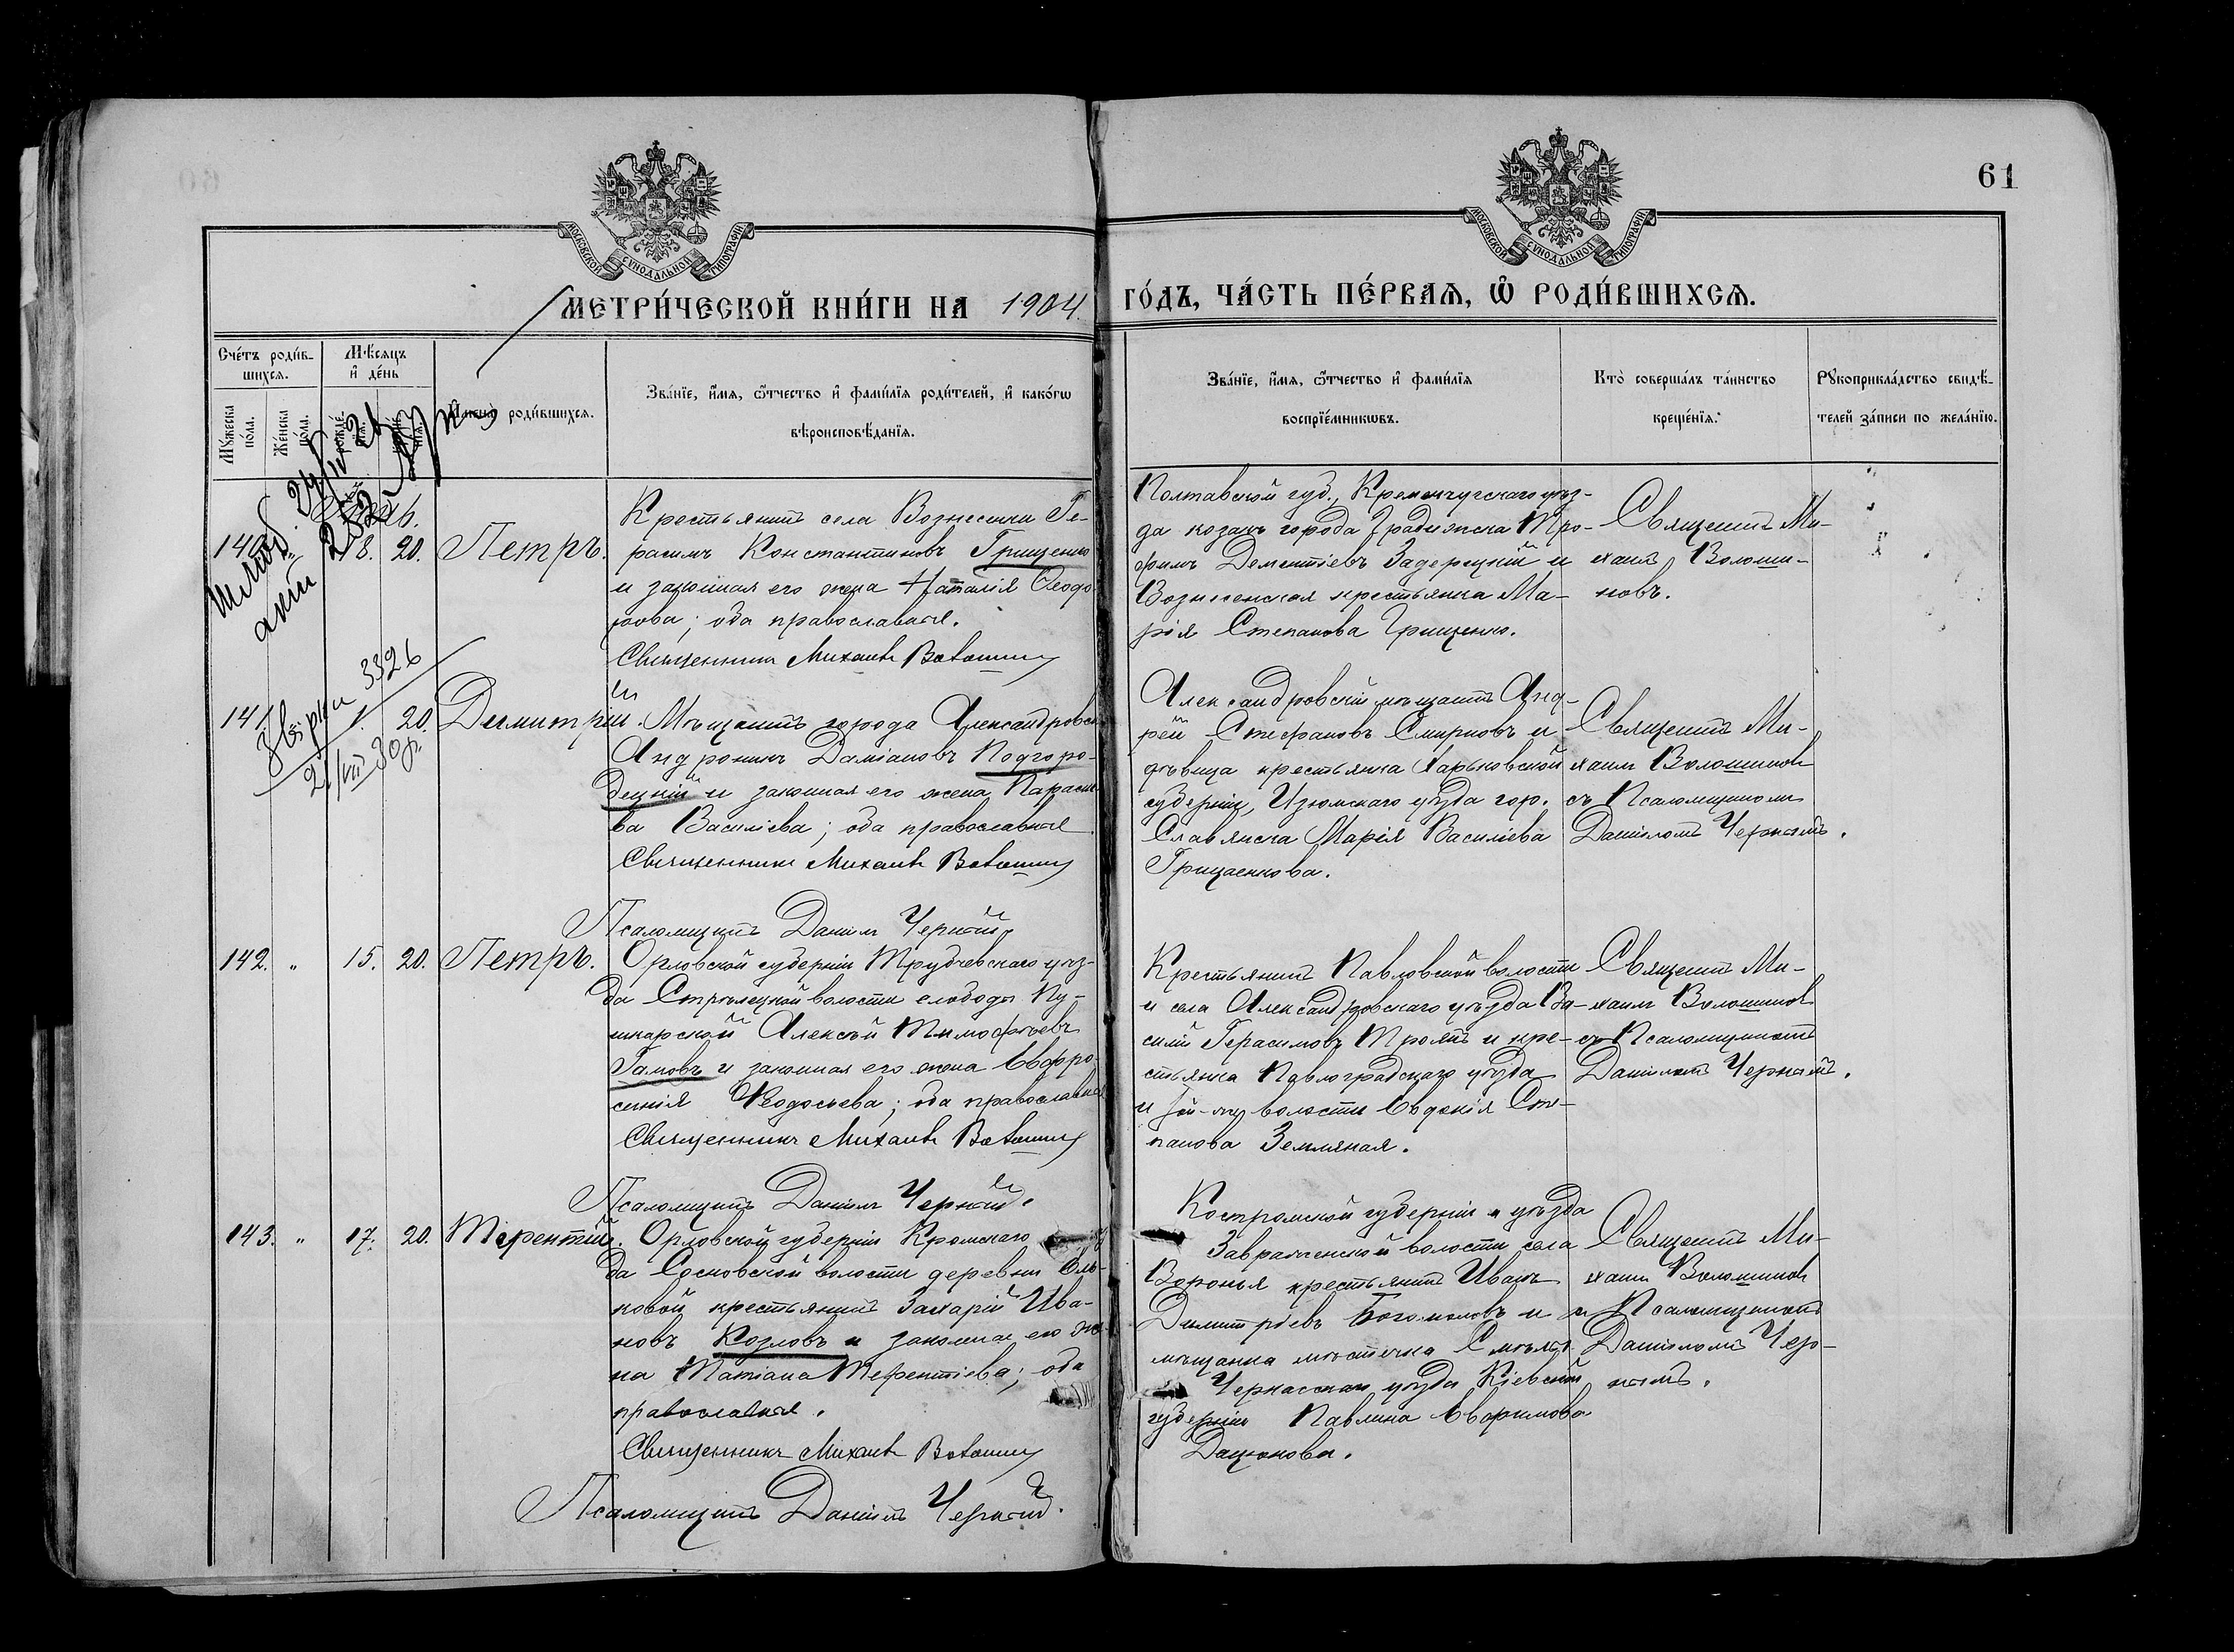 61
МОСКОВСКОЙ СУНОДАЛЬНОЙ ТИПОГРАФІИ
МОСКОВСКОЙ СУНОДАЛЬНОЙ ТИПОГРАФІИ
МЕТРИ́ЧЕСКОЙ КНИ́ГИ НА 1904.
ГО́ДЪ, ЧА́СТЬ ПЕ́РВАѦ, Ѡ҆ РОДИ́ВШИХСѦ.
Сче́тъ роди́в-
шихсѧ.
Мѣ́сѧцъ
и҆ де́нь
Мꙋ́жеска
по́ла.
Же́нска
по́ла.
роди́вшихсѧ.
Зва́нїе, и҆́мѧ, ѻ҆́тчество и҆ фами́лїѧ роди́телей, и҆ како́гѡ
вѣроисповѣ́данїѧ.
Зва́нїе, и҆́мѧ, ѻ҆́тчество и҆ фами́лїѧ
воспрїе́мникѡвъ.
Кто̀ соверша́лъ та́инство
креще́нїѧ.
Рꙋкоприкла́дство свидѣ́-
телей за́писи по жела́нїю.
20. Петръ.
Крестьянинъ села Вознесенки Ге-
расимъ Константиновъ Грищенко
и законная его жена Наталія Ѳеодо-
рова; оба православные.
Священникъ Михаилъ Волошинъ
Полтавской губ., Кременчугскаго уѣз-
да козакъ города Градижска Тро-
фимъ Дементіевъ Задерецкій и
Вознесенская крестьянка Ма-
рія Степанова Грищенко.
Священникъ Ми-
хаилъ Волоши-
новъ.
3326
141. 20. Димитрій.
Мѣщанинъ города Александровска
Андроникъ Даміановъ Подгоро-
децкій и законная его жена Параске-
ва Василіева; оба православные
Священникъ Михаилъ Волошинъ
Псаломщикъ Даніилъ Черный.
Александровскій мѣщанинъ Анд-
рей Стефановъ Смирновъ и
дѣвица крестьянка Харьковской
губерніи, Изюмскаго уѣзда гор.
Славянска Марія Василіева
Грицаенкова.
Священникъ Ми-
хаилъ Волошиновъ
съ Псаломщикомъ
Даніиломъ Чернымъ.
142. " 15. 20. Петръ.
Орловской губерніи Трубчевскаго уѣз-
да Стрѣлецкой волости слободы Пу-
шкарской Алексѣй Тимофѣевъ
Гамовъ и законная его жена Евфро-
синія Ѳеодосьева; оба православные
Священникъ Михаилъ Волошинъ
Псаломщикъ Даніилъ Черный.
Крестьянинъ Павловской волости
и села Александровскаго уѣзда Ва-
силій Герасимовъ Троянъ и кре-
стьянка Павлоградскаго уѣзда
и волости Евдокія Сте-
панова Земляная.
Священникъ Ми-
хаилъ Волошиновъ
съ Псаломщикомъ
Даніиломъ Чернымъ.
143. " 17. 20. Терентій.
Орловской губерніи Кромскаго
да Сосковской волости деревни
ковой крестьянинъ Захарій Ива-
новъ Козловъ и законная его же-
на Татіана Терентіева; оба
православные.
Священникъ Михаилъ Волошинъ
Псаломщикъ Даніилъ Черный.
Костромской губерніи и уѣзда
волости села
Воронья крестьянинъ Иванъ
Димитріевъ Богомоловъ и
мѣщанка мѣстечка Смѣлы
Черкасскаго уѣзда Кіевской
губерніи Павлина
Дацюкова.
Священникъ Ми-
хаилъ Волошиновъ
и Псаломщикомъ
Даніиломъ Чер-
нымъ.